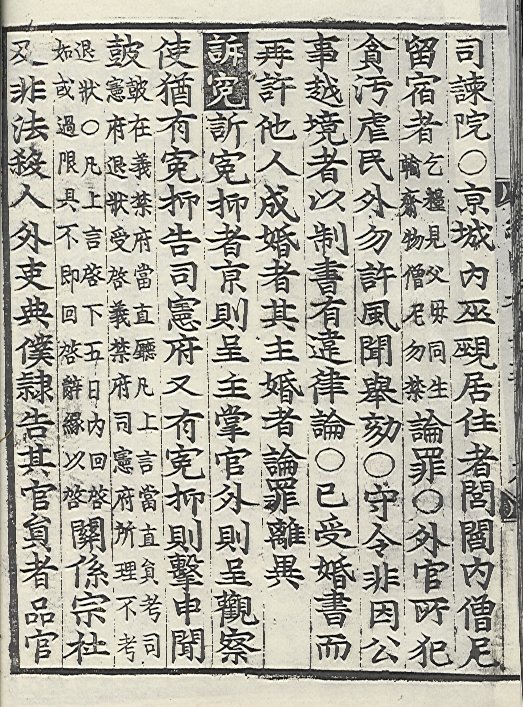 司諫院○京城內巫覡居住者閭閻內僧尼
留宿者乞糧見父母同生
輸齋物僧尼勿禁論罪○外官所犯
貪汚虐民外勿許風聞擧劾○守令非因公
事越境者以制書有違律論○已受婚書而
再許他人成婚者其主婚者論罪離異
訴冤訴冤抑者京則呈主掌官外則呈觀察
使猶有冤抑告司憲府又有冤抑則擊申聞
鼓鼓在義禁府當直廳凡上言當直員考司
憲府退狀受啓義禁府司憲府所理不考
退狀○凡上言啓下五日內回啓
如或過限具不即回啓辭緣以啓關係宗社
及非法殺人外吏典僕隷告其官員者品官